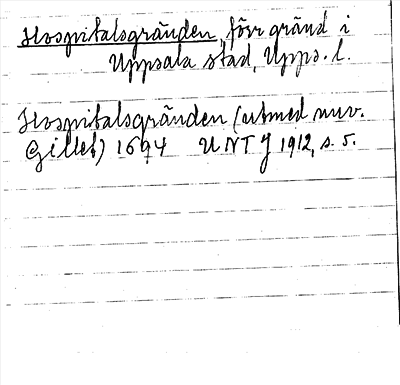 Hospitalsgränden, förr gränd i
Uppsala stad, Upps. l.
Hospitalsgränden (utmed nuv.
Gillet) 1694 UNTJ 1912, s. 5.